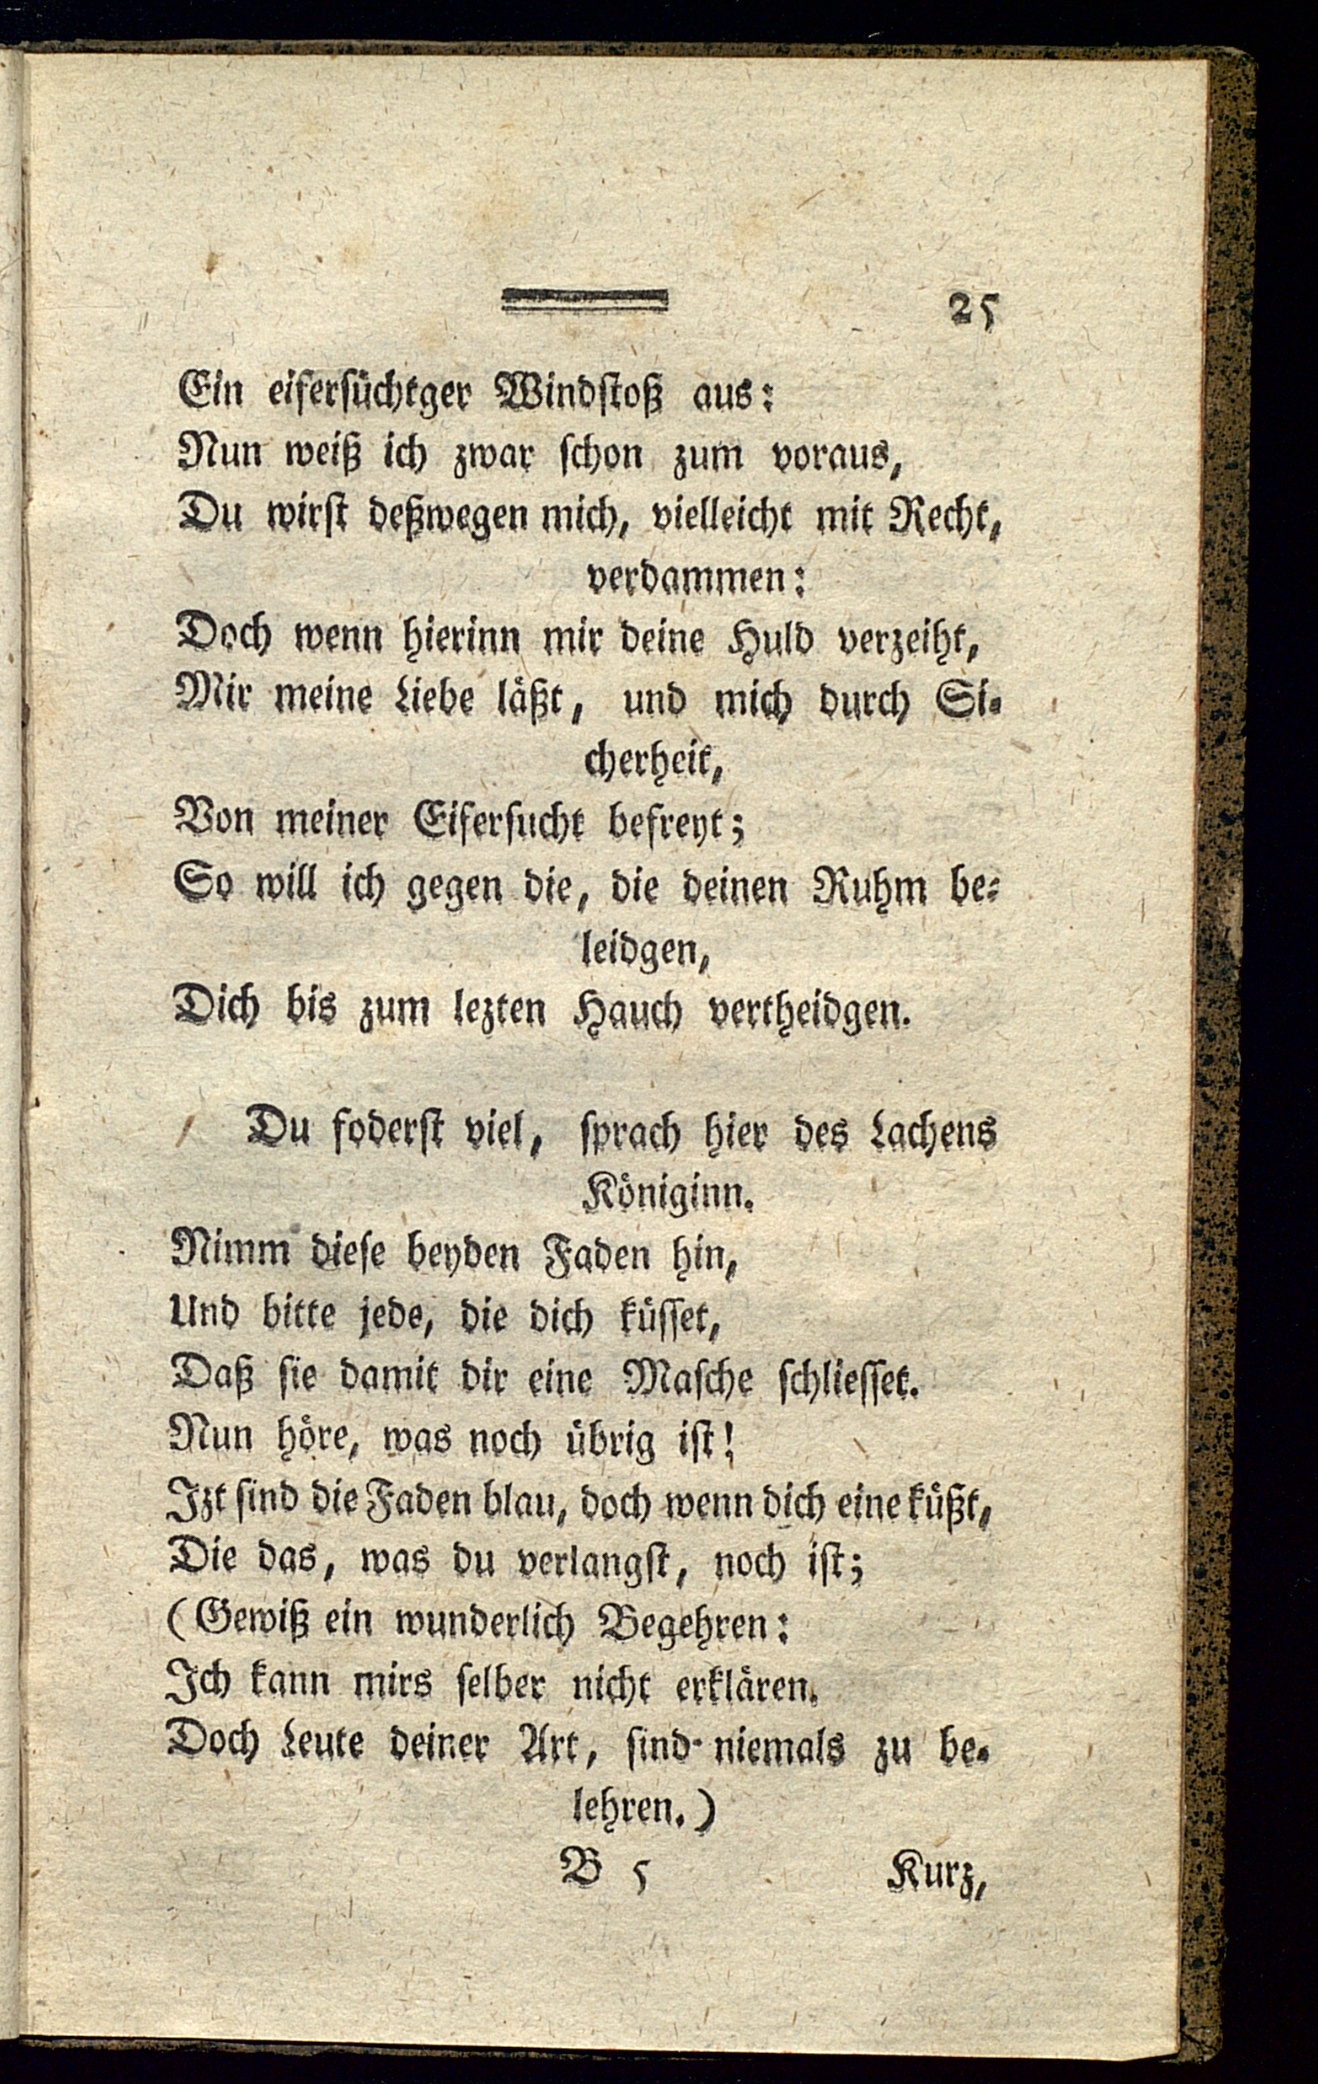 25
Ein eifersüchtger Windstoß aus:
Nun weiß ich zwar schon zum voraus,
Du wirst deßwegen mich, vielleicht mit Recht,
verdammen:
Doch wenn hierinn mir deine Huld verzeiht,
Mir meine Liebe läßt, und mich durch Si-
cherheit,
Von meiner Eifersucht befreyt;
So will ich gegen die, die deinen Ruhm be-
leidgen,
Dich bis zum lezten Hauch vertheidgen.
Du foderst viel, sprach hier des Lachens
Königinn.
Nimm diese beyden Faden hin,
Und bitte jede, die dich küsset,
Daß sie damit dir eine Masche schliesset.
Nun höre, was noch übrig ist!
Izt sind die Faden blau, doch wenn dich eine küßt,
Die das, was du verlangst, noch ist;
(Gewiß ein wunderlich Begehren:
Ich kann mirs selber nicht erklären.
Doch Leute deiner Art, sind niemals zu be-
lehren.)
B 5 Kurz,